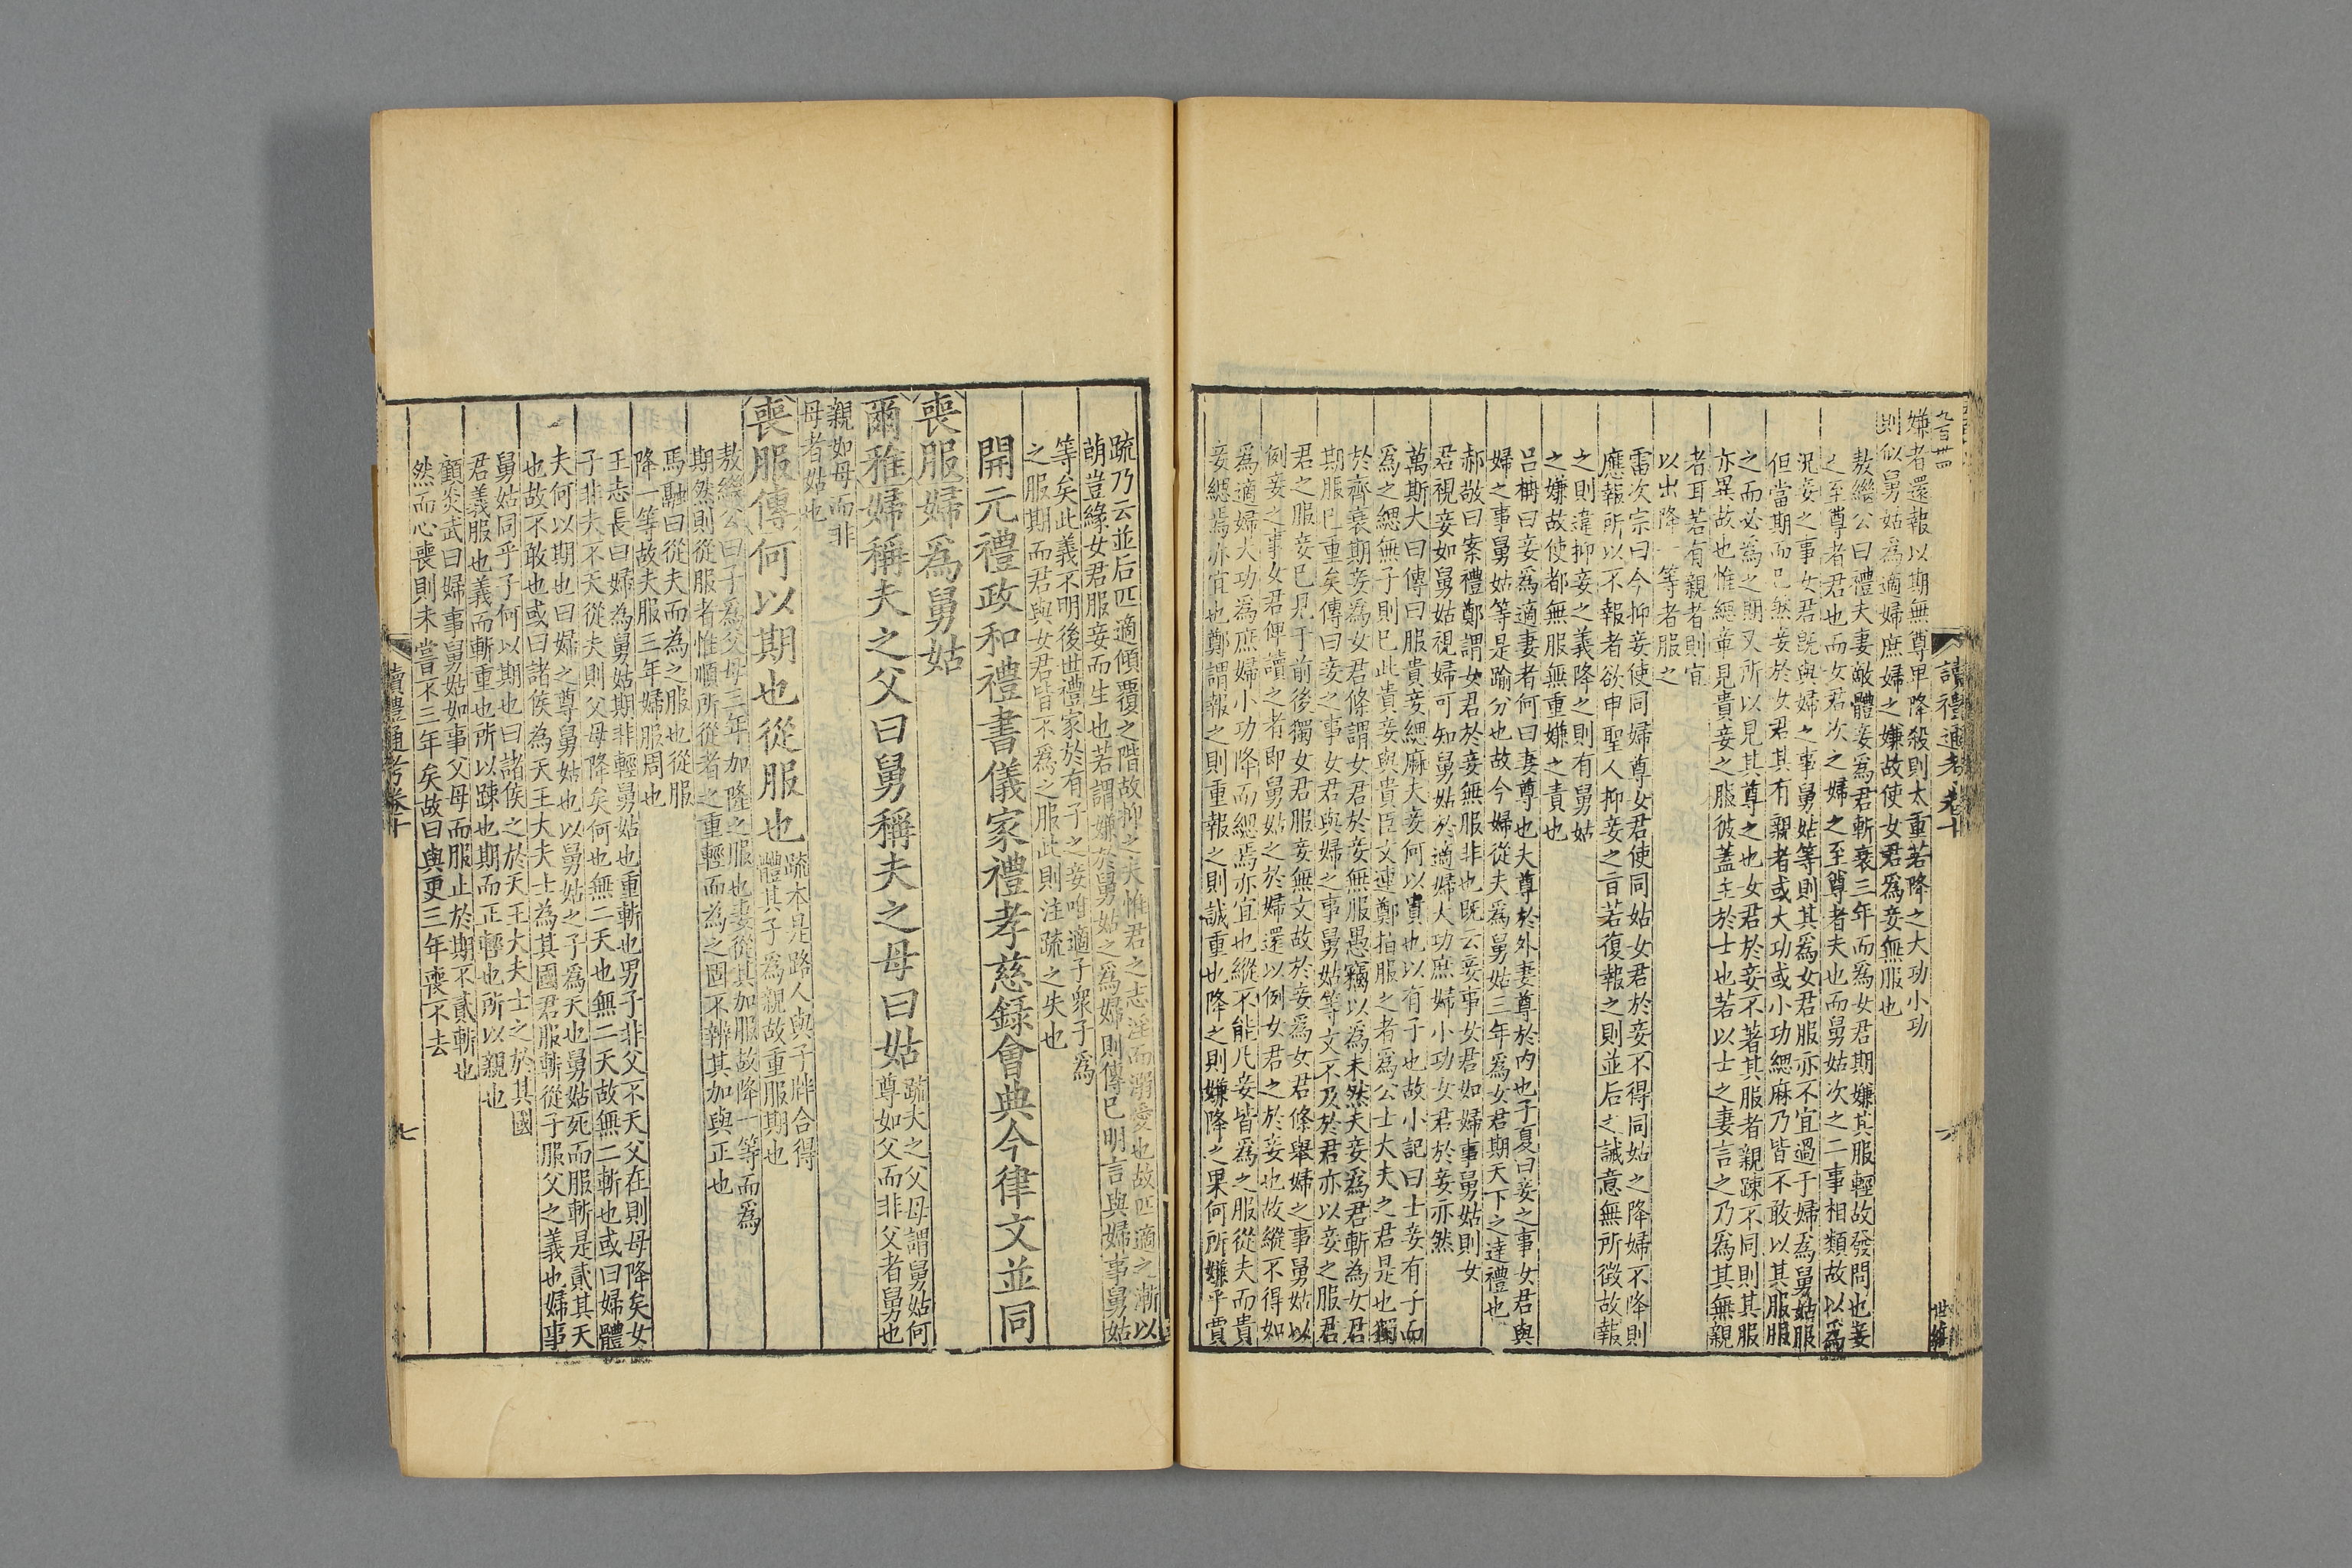 嫌者還報以期無尊卑降殺則太重若降之大功小功
則似舅姑為適婦庶婦之嫌故使女君爲妾無服也
敖繼公曰禮夫妻敵體妾爲君斬衰三年而爲女君期嫌其服輕故發問也妾
之至尊者君也而女君次之婦之至尊者夫也而舅姑次之二事相類故以爲
況妾之事女君旣與婦之事舅姑等則其爲女君服亦不宜過于婦爲舅姑服
但當期而已然妾於女君其有親者或大功或小功緦麻乃皆不敢以其服服
之而必爲之期又所以見其尊之也女君於妾不著其服者親踈不同則其服
亦異故也惟緦章見貴妾之服彼蓋主於士也若以士之妻言之乃爲其無親
者耳若有親者則宜
以出降一等者服之
雷次宗曰今抑妾使同婦尊女君使同姑女君於妾不得同姑之降婦不降則
應報所以不報者欲申聖人抑妾之旨若復報之則並后之誠意無所徵故報
之則違抑妾之義降之則有舅姑
之嫌故使都無服無重嫌之責也
呂柟曰妾爲適妻者何曰妻尊也夫尊於外妻尊於內也子夏曰妾之事女君與
婦之事舅姑等是踰分也故今婦從夫爲舅姑三年爲女君期天下之達禮也
郝敬曰案禮鄭謂女君於妾無服非也既云妾事女君如婦事舅姑則女
君視妾如舅姑視婦可知舅姑於適婦大功庶婦小功女君於妾亦然
萬斯大曰傳曰服貴妾緦麻夫妾何以貴也以有子也故小記曰士妾有子而
爲之緦無子則已此貴妾與貴臣文連鄭指服之者爲公士大夫之君是也獨
於齊衰期妾爲女君條謂女君於妾無服愚竊以為未然夫妾爲君斬為女君
期服已重矣傳曰妾之事女君與婦之事舅姑等文不及於君亦以妾之服君
君之服妾已見于前後獨女君服妾無文故於妾爲女君條舉婦之事舅姑以
例妾之事女君俾讀之者即舅姑之於婦還以例女君之於妾也故縱不得如
爲適婦大功爲庶婦小功降而緦焉亦宜也縱不能凡妾皆爲之服從夫而貴
妾緦焉亦宜也鄭謂報之則重報之則誠重也降之則嫌降之果何所嫌乎賈
讀禮通考卷十
六
疏乃云並后匹適傾覆之階故抑之夫惟君之志淫而溺愛也故匹適之漸以
萌豈緣女君服妾而生也若謂嫌於舅姑之爲婦則傳已明言與婦事舅姑
等矣此義不明後世禮家於有子之妾唯適子衆子爲
之服期而君與女君皆不爲之服此則注疏之失也
開元禮政和禮書儀家禮孝慈錄會典今律文並同
喪服婦爲舅姑
爾雅婦稱夫之父曰舅稱夫之母曰姑疏夫之父母謂舅姑何
尊如父而非父者舅也
親如母而非
母者姑也
喪服傳何以期也從服也疏本是路人與子牉合得
體其子爲親故重服期也
敖繼公曰子爲父母三年加隆之服也妻從其加服故降一等而爲
期然則從服者惟順所從者之重輕而為之固不辨其加與正也
馬融曰從夫而為之服也從服
降一等故夫服三年婦服周也
王志長曰婦為舅姑期非輕舅姑也重斬也男子非父不天父在則母降矣女
子非夫不天從夫則父母降矣何也無二天也無二天故無二斬也或曰婦體
夫何以期也曰婦之尊舅姑也以舅姑之子爲天也舅姑死而服斬是貳其天
也故不敢也或曰諸侯為天王大夫士為其國君服斬從子服父之義也婦事
舅姑同乎子何以期也曰諸侯之於天王大夫士之於其國
君義服也義而斬重也所以踈也期而正輕也所以親也
顧炎武曰婦事舅姑如事父母而服止於期不貳斬也
然而心喪則未嘗不三年矣故曰與更三年喪不去
讀禮通考卷十
七